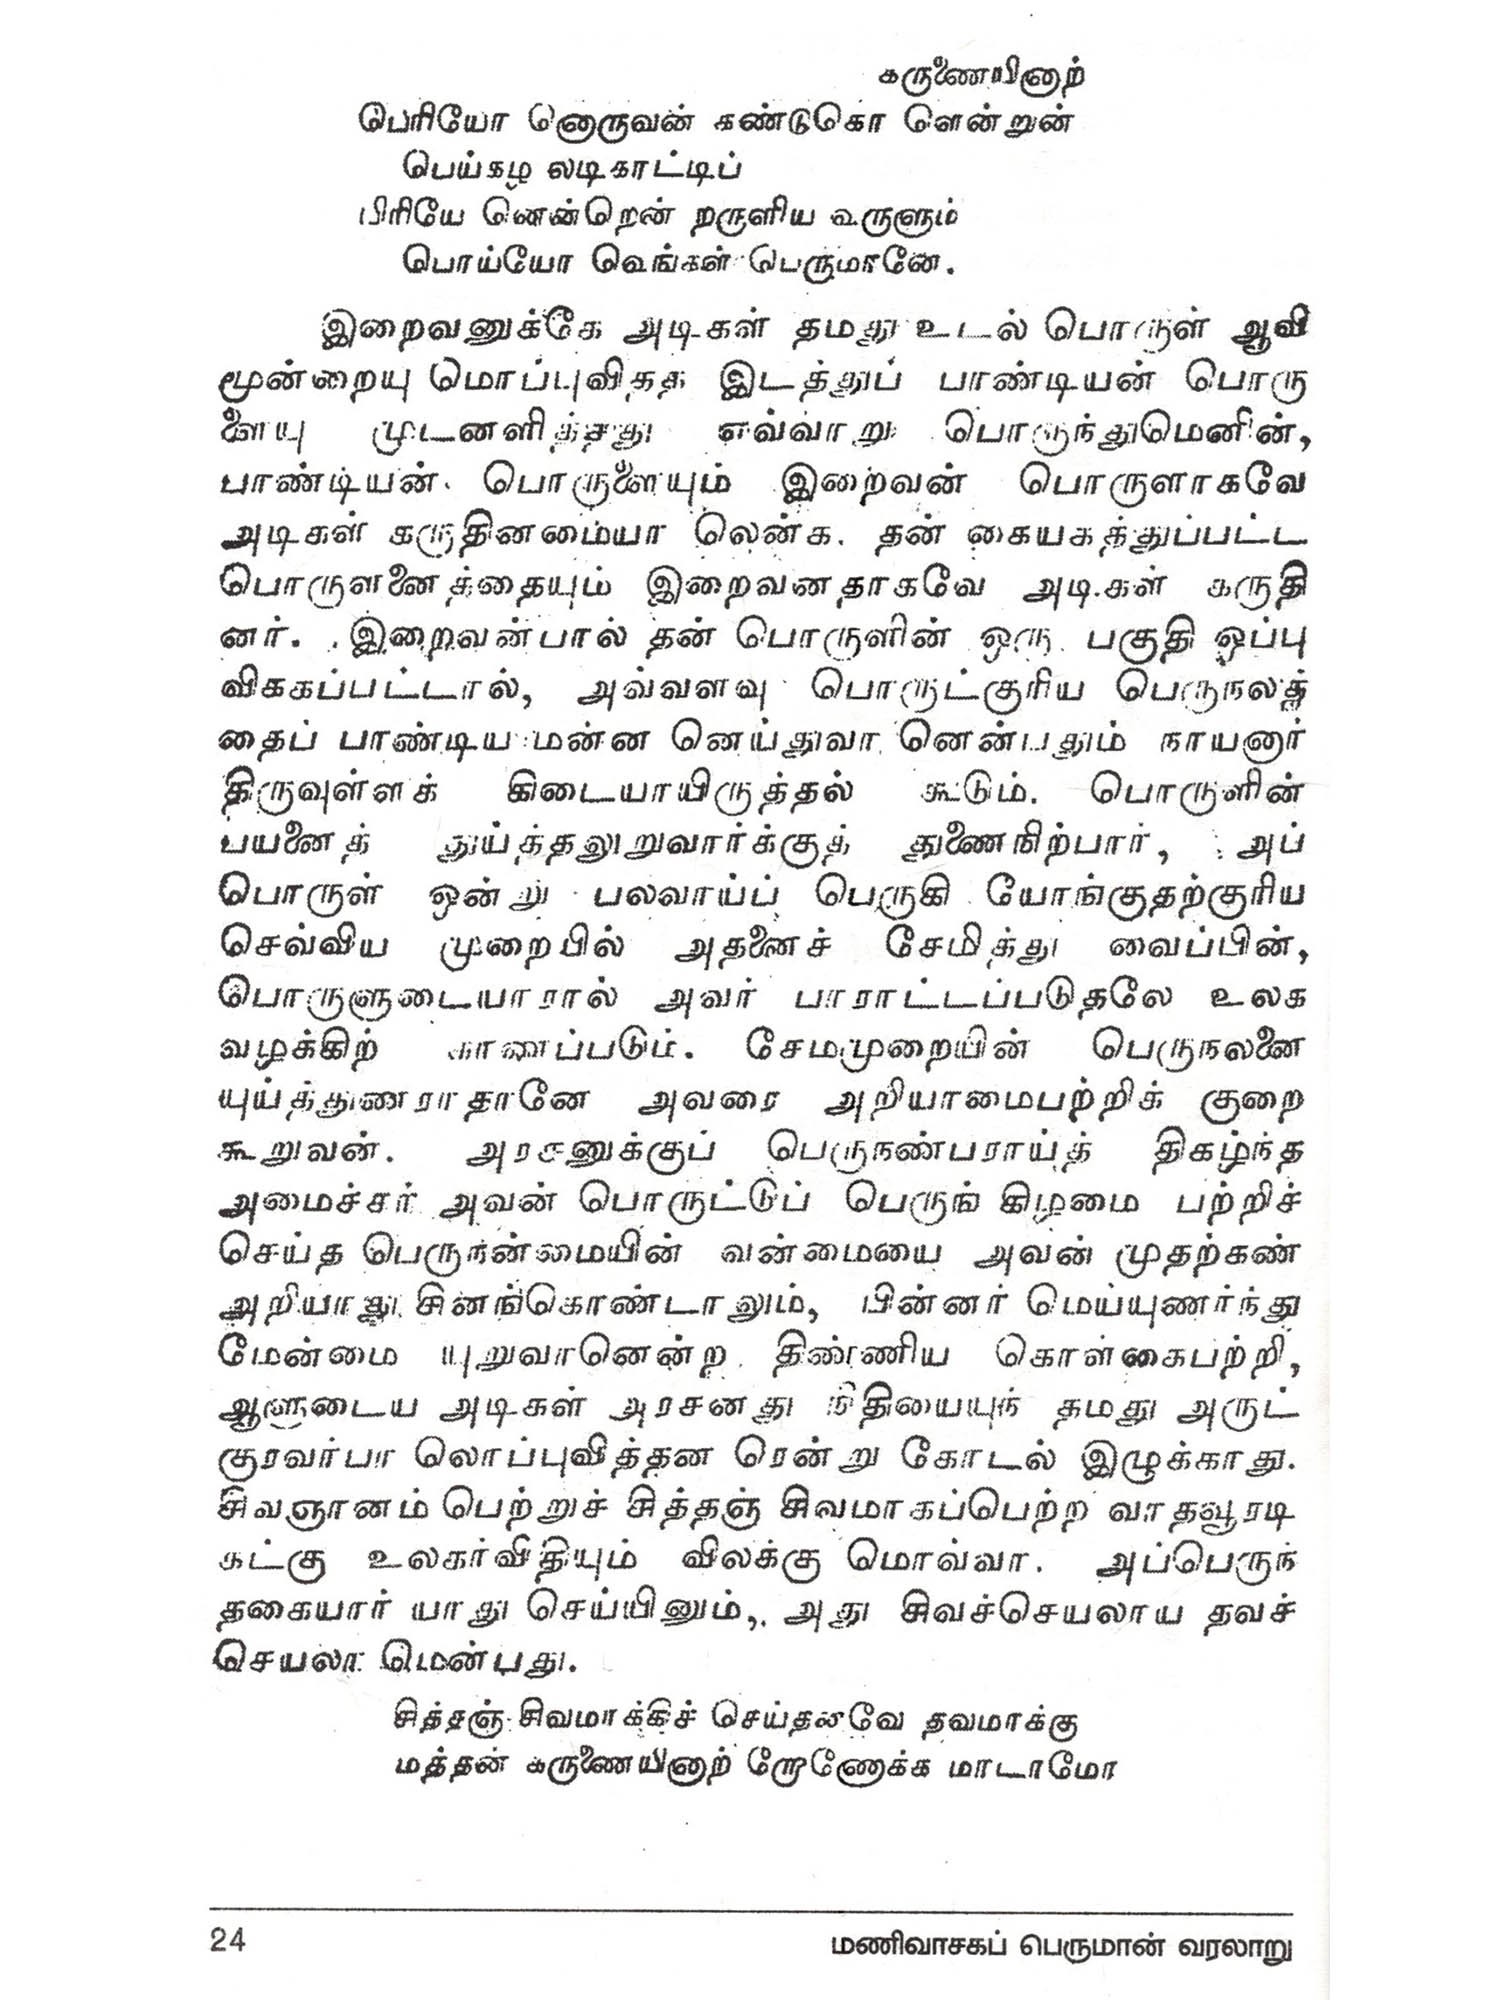 கருணையினாற்
பெரியோ னொருவன் கண்டுகொ ளென்றுன்
பெய்கழ லடிகாட்டிப்
பிரியே னென்றென் றருளிய வருளும்
பொய்யோ வெங்கள் பெருமானே.
இறைவனுக்கே அடிகள் தமது உடல் பொருள் ஆவி
மூன்றையு மொப்புவித்த இடத்துப் பாண்டியன் பொரு
ளையு முடனளித்தது எவ்வாறு பொருந்துமெனின்,
பாண்டியன் பொருளையும் இறைவன் பொருளாகவே
அடிகள் கருதினமையா லென்க. தன் கையகத்துப்பட்ட
பொருளனைத்தையும் இறைவனதாகவே அடிகள் கருதி
னர். இறைவன்பால் தன் பொருளின் ஒரு பகுதி ஒப்பு
விக்கப்பட்டால், அவ்வளவு பொருட்குரிய பெருநலத்
தைப் பாண்டிய மன்ன னெய்துவா னென்பதும் நாயனார்
திருவுள்ளக் கிடையாயிருத்தல் கூடும். பொருளின்
பயனைத் துய்த்தலுறுவார்க்குத் துணைநிற்பார், அப்
பொருள் ஒன்று பலவாய்ப் பெருகி யோங்குதற்குரிய
செவ்விய முறையில் அதனைச் சேமித்து வைப்பின்,
பொருளுடையாரால் அவர் பாராட்டப்படுதலே உலக
வழக்கிற் காணப்படும். சேமமுறையின் பெருநலனை
யுய்த்துணராதானே அவரை அறியாமைபற்றிக் குறை
கூறுவன். அரசனுக்குப் பெருநண்பராய்த் திகழ்ந்த
அமைச்சர் அவன் பொருட்டுப் பெருங் கிழமை பற்றிச்
செய்த பெருநன்மையின் வன்மையை அவன் முதற்கண்
அறியாது சினங்கொண்டாலும், பின்னர் மெய்யுணர்ந்து
மேன்மை யுறுவானென்ற திண்ணிய கொள்கைபற்றி,
ஆளுடைய அடிகள் அரசனது நிதியையுந் தமது அருட்
குரவர்பா லொப்புவித்தன ரென்று கோடல் இழுக்காது.
சிவஞானம் பெற்றுச் சித்தஞ் சிவமாகப்பெற்ற வாதவூரடி
கட்கு உலகர்விதியும் விலக்கு மொவ்வா. அப்பெருந்
தகையார் யாது செய்யினும், அது சிவச்செயலாய தவச்
செயலா மென்பது.
சித்தஞ் சிவமாக்கிச் செய்தனவே தவமாக்கு
மத்தன் கருணையினாற் றோணோக்க மாடாமோ
24 மணிவாசகப் பெருமான் வரலாறு